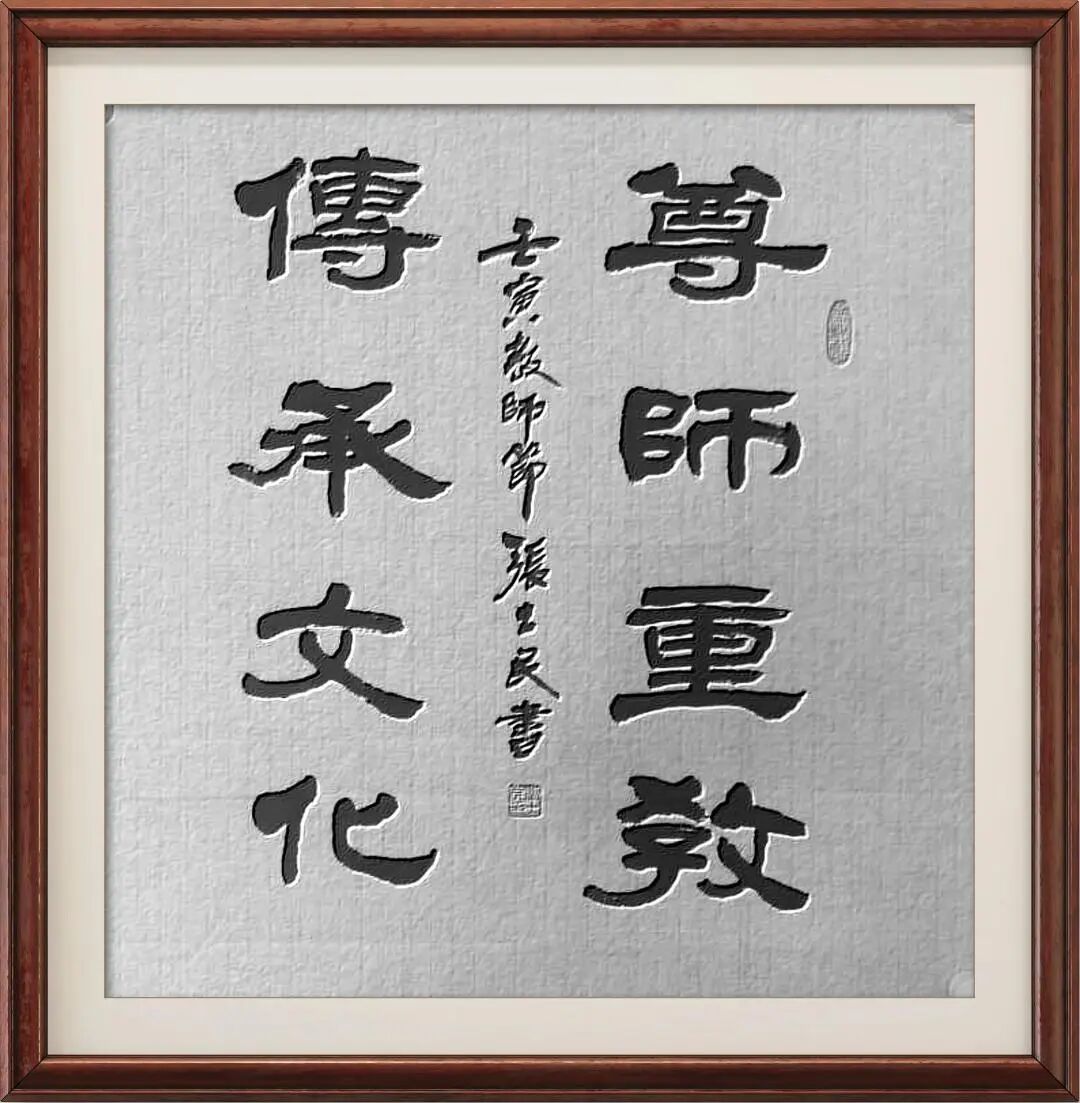 尊師重教
壬寅教師節張士民書
傳承文化